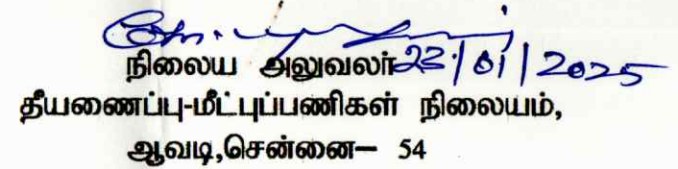 நிலைய அலுவலர் 23/01/2025
தீயணைப்பு-மீட்புப்பணிகள் நிலையம்,
ஆவடி,சென்னை— 54